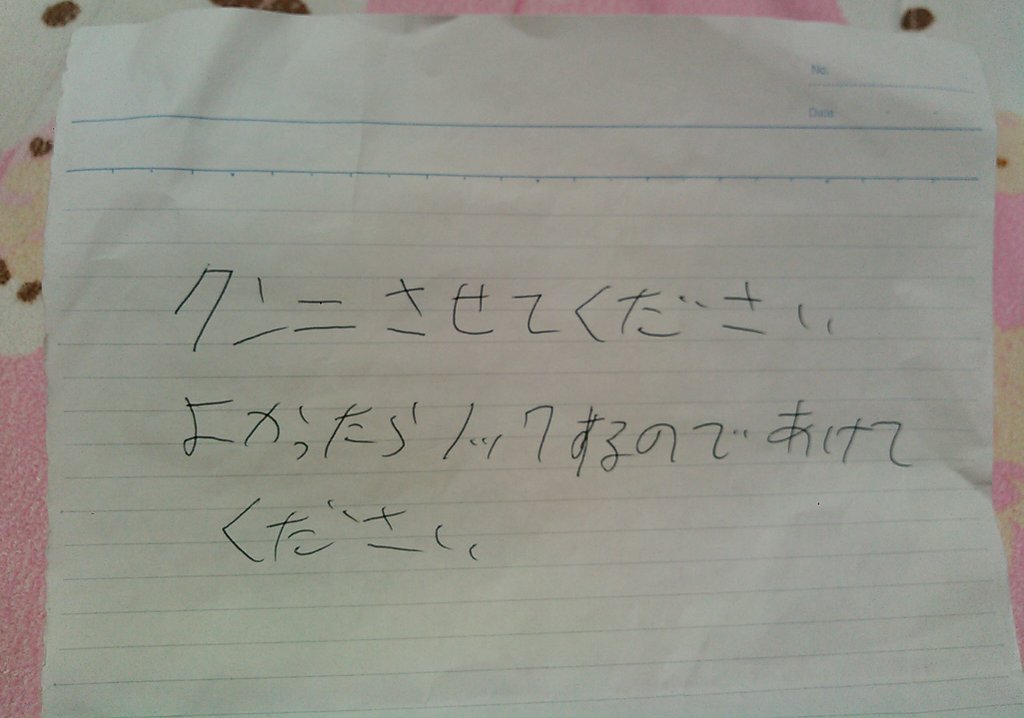 No.
Date
クンニさせてください
よかったらノックするのであけて
ください